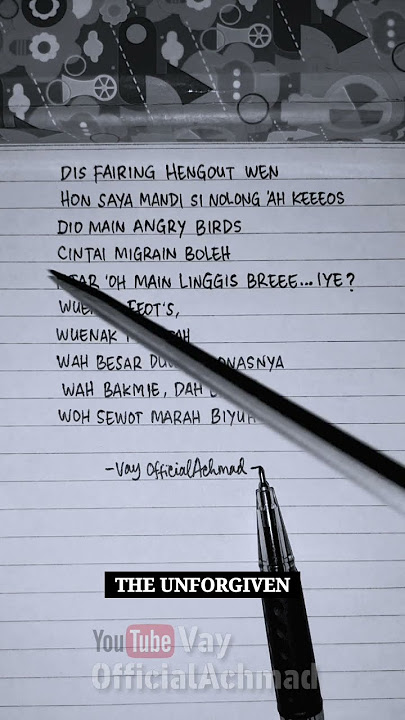 DIS FAIRING HENGOUT WEN
HON SAYA MANDI SI NOLONG 'AH KEEEOS
DIO MAIN ANGRY BIRDS
CINTAI MIGRAIN BOLEH
'OH MAIN LINGGIS BREEE... IYE?
FEOT'S,
WUENAK
WAH BESAR
WAH BAKMIE, DAH
WOH SEWOT MARAH
-Vay OfficialAchmad-
THE UNFORGIVEN
YouTube Vay
OfficialAchmad